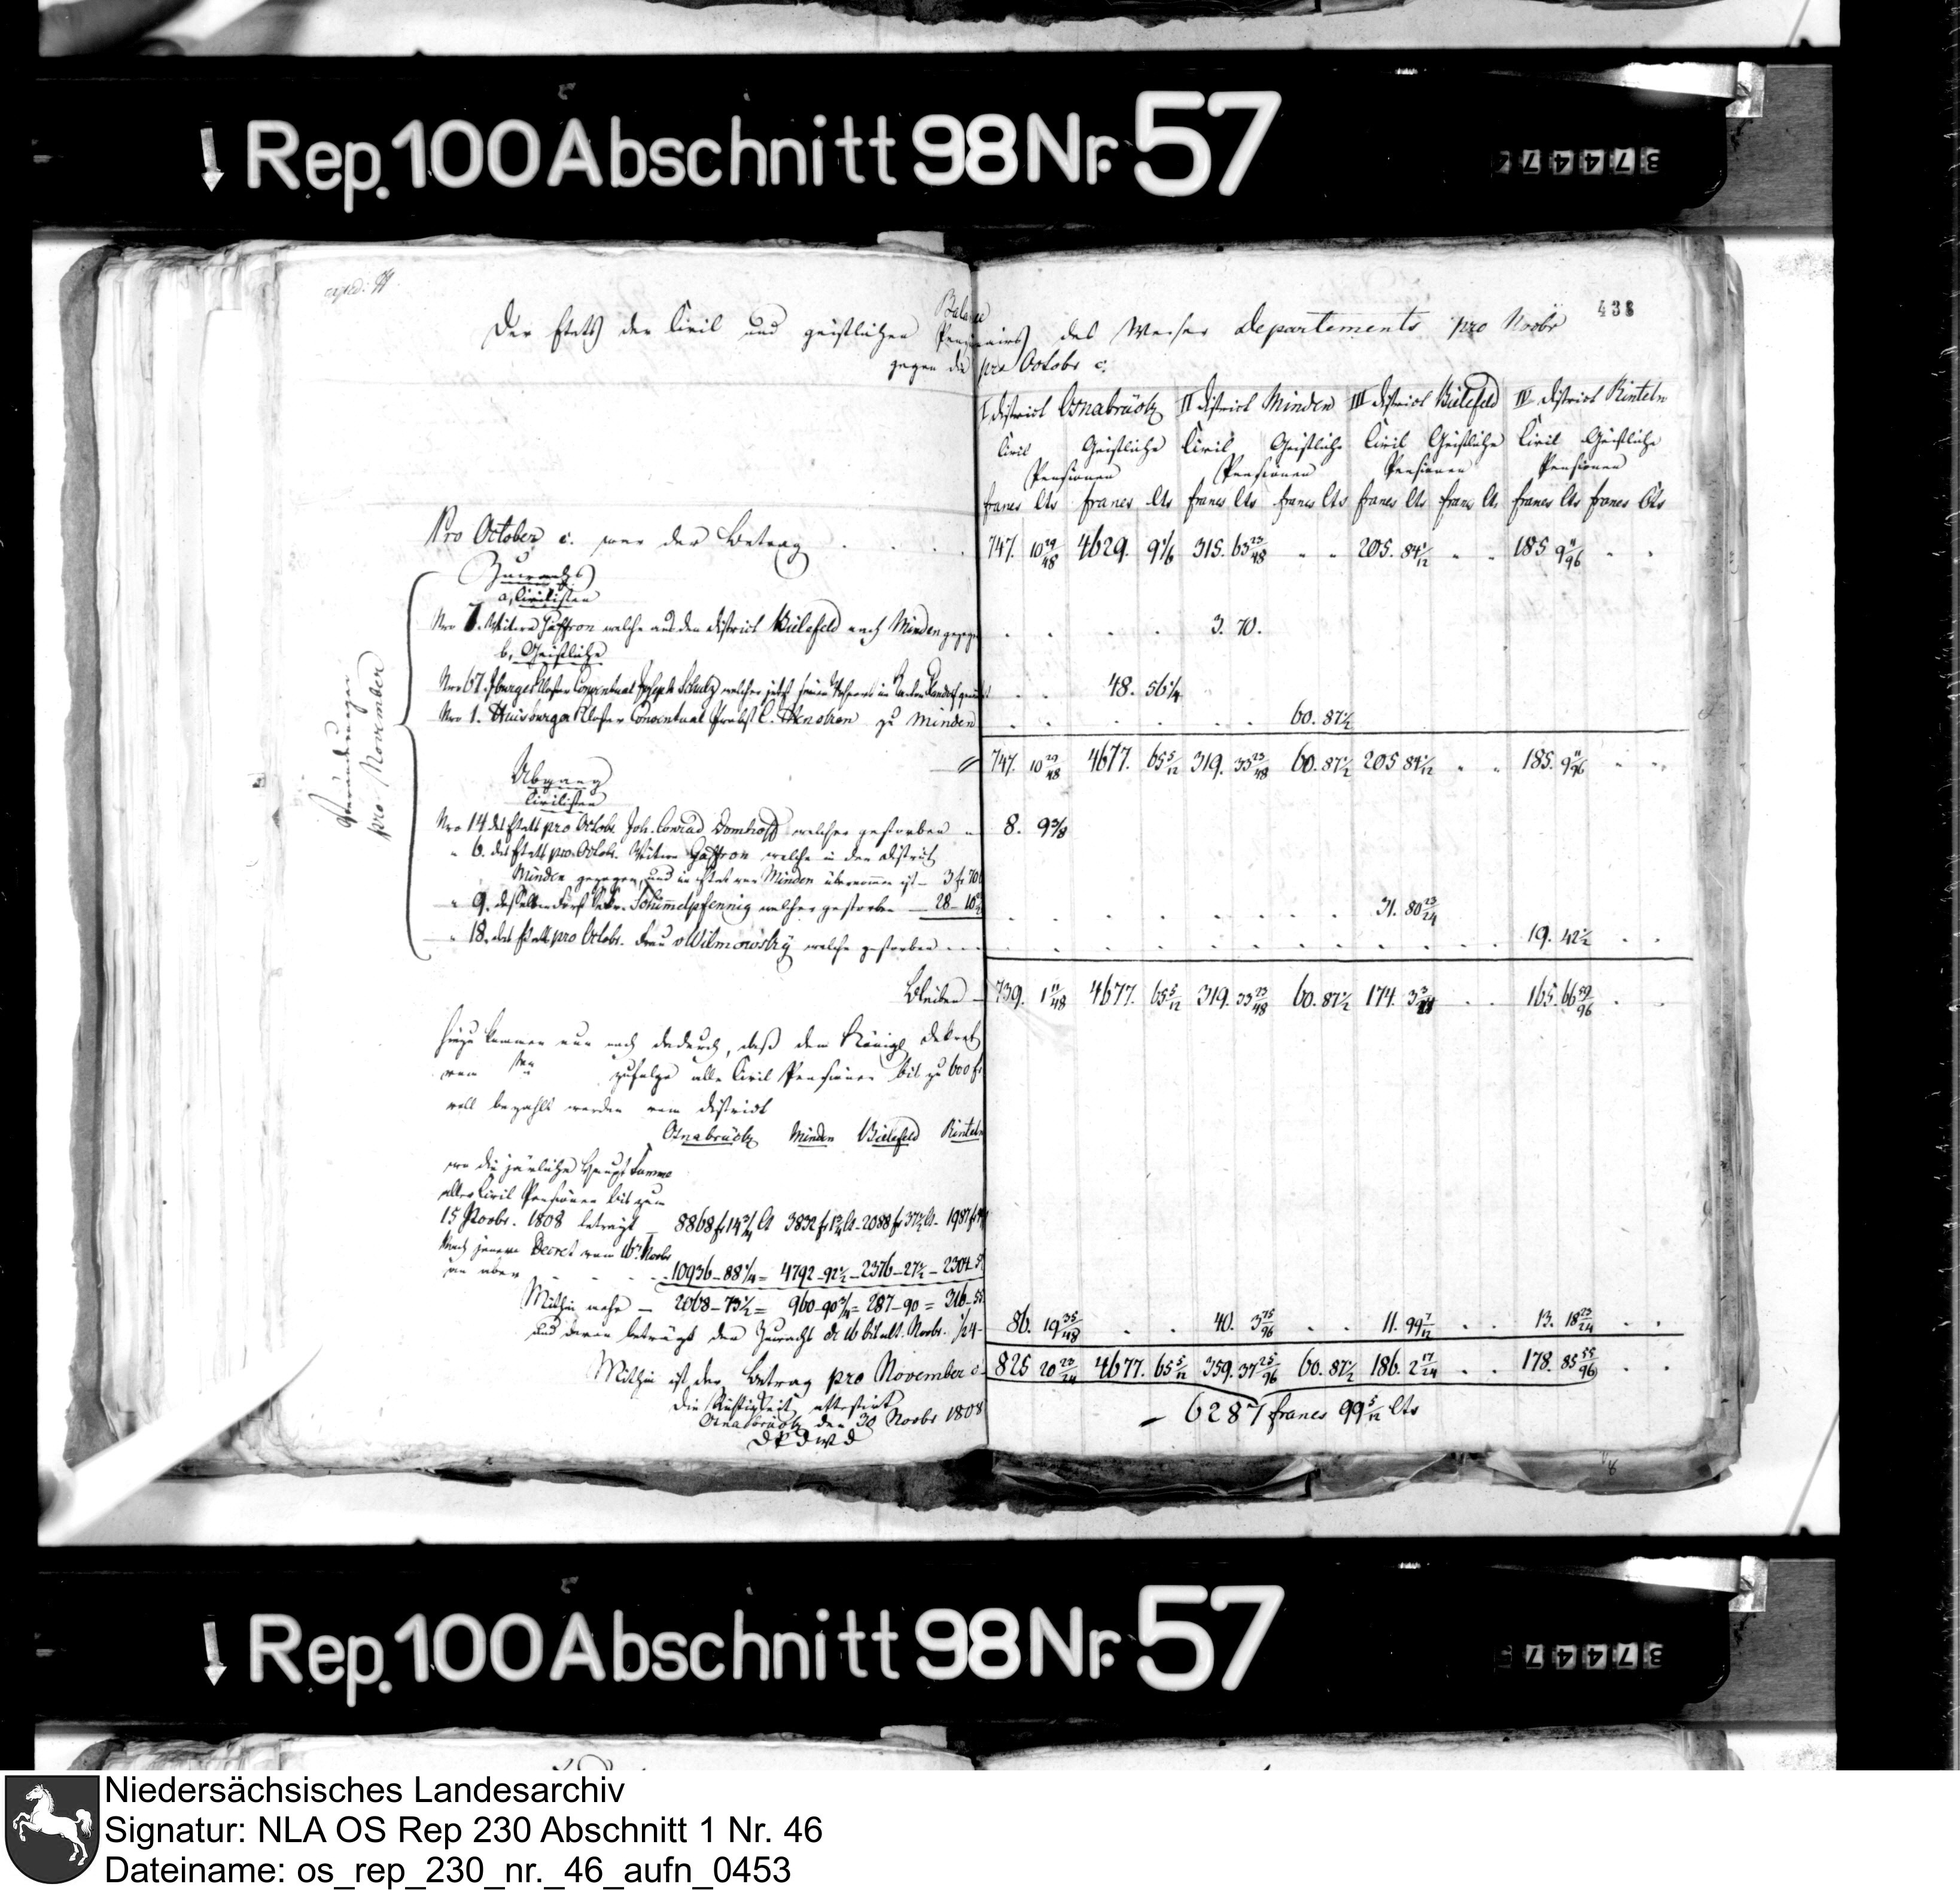 ↓ Rep. 100 Abschnitt 98 Nr. 57
37447
exped: 
438
Balance
Der Etats der Civil und geistlichen Pensionairs des Weser Departements pro Novbr
gegen die pro Octobr c.
I District Osnabrück II District Minden III District Bielefeld IV District Rinteln
Civil Geistliche Civil Geistliche Civil Geistliche Civil Geistliche
Pensionen Pensionen Pensionen Pensionen
francs Cts francs Cts francs Cts francs Cts francs Cts franc Cts francs Cts francs Cts
Pro October c. war der Betrag . . . . 747. 10 29/48 4629. 9 1/6 315. 63 23/48 . . 205. 84 1/12 . . 185 9 11/96 . .
Zuwachs
a, Civilisten
Nro 7. Wittwe Haffron welche aus den District Bielefeld nach Minden gezogen . . . . 3. 70.
b, Geistliche
Nro 67. Iburger Kloster Conventual Joseph Schulz welcher jetzt seinen in Canton . . 48. 56 1/4
Nro 1. Huisburger Kloster Conventual Probst C. zu Minden . . . . . . 60. 87 1/2
747. 10 29/48 4677. 65 5/12 319. 33 23/48 60. 87 1/2 205 84 1/12 . . 185. 9 11/96 . .
Veraenderungen
pro November
Abgang
Civilisten
Nro 14 des Etatts pro Octobr. Joh. Conrad Domhoff welcher gestorben 8. 9 3/8
" 6. des Etatts pro Octobr. Wittwe Haffron welche in den District
Minden gezogen, und in Etat von Minden übernommen ist - 3 fr 70
" 9. desselben Schimmelpfennig welcher gestorben - 28 - 10 . . . . . . . 31. 80 23/24
" 18. des Etatts pro Octobr. Frau v Wilmowsky welche gestorben . . . . . . . . . . 19. 42 1/2 . .
Bleiben - 739. 1 11/48 4677. 65 5/12 319. 33 23/48 60. 87 1/2 174. 3 3/24 . . 165. 66 59/96 . .
Hiezu kommen nun noch dadurch, daß dem Königl Dekret
vom zufolge alle Civil Pensionen bis zu 600 fr
voll bezahlt werden vom District
Osnabrück Minden Bielefeld Rinteln
wo die järliche Haupt Summe
aller Civil Pensionen bis zum
15 Novbr. 1808 beträgt - 8868 fr 14 3/4 Ct 3832 fr 1 3/4 Ct - 2088 fr 37 1/2 Ct - 1987 fr
Nach jenem Decret vom 16 Novbr
an aber - - - - 10936 - 88 1/4 = 4792 - 92 1/2 - 2376 - 27 1/2 - 2304
Mithin mehr - 2068 - 73 1/2 = 960 - 90 3/4 = 287 - 90 = 316 - 55
und davon beträgt der Zuwachs de 16 bis ult. Novbr. 1/24 - 86. 19 35/48 . . 40. 3 75/96 . . 11. 99 7/12 . . 13. 18 23/24 . .
Mithin ist der Betrag pro November c. 825 20 23/24 4677. 65 5/12 359. 37 25/96 60. 87 1/2 186. 2 17/24 . . 178. 85 55/96 . .
- 6287 francs 99 5/12 Cts
Die Richtigkeit attestirt
Osnabrück den 30 Novbr 1808
D P D W D
↓ Rep. 100 Abschnitt 98 Nr. 57
37447
Niedersächsisches Landesarchiv
Signatur: NLA OS Rep 230 Abschnitt 1 Nr. 46
Dateiname: os_rep_230_nr._46_aufn_0453